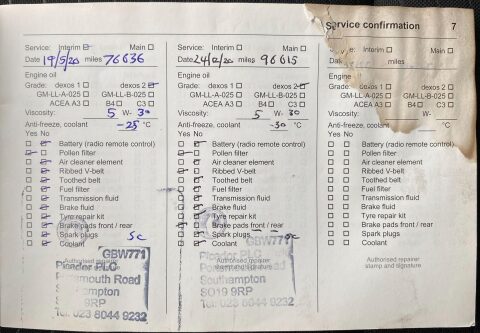 Service confirmation 7
Service: Interim Main
Date 19/5/20 miles 76636
Engine oil
Grade: dexos 1 dexos 2
GM-LL-A-025 GM-LL-B-025
ACEA A3 B4 C3
Viscosity: 5 W- 30
Anti-freeze, coolant -25 °C
Yes No
Battery (radio remote control)
Pollen filter
Air cleaner element
Ribbed V-belt
Toothed belt
Fuel filter
Transmission fluid
Brake fluid
Tyre repair kit
Brake pads front / rear
Spark plugs
Coolant
Authorised repairer
GBW771
Picador PLC
Portsmouth Road
Southampton
9RP
Tel: 023 8044 9232
Service: Interim Main
miles 96615
Engine oil
Grade: dexos 1 dexos 2
GM-LL-A-025 GM-LL-B-025
ACEA A3 B4 C3
Viscosity: 5 W- 30
Anti-freeze, coolant -30 °C
Yes No
Battery (radio remote control)
Pollen filter
Air cleaner element
Ribbed V-belt
Toothed belt
Fuel filter
Transmission fluid
Brake fluid
Tyre repair kit
Brake pads front / rear
Spark plugs
Coolant
Authorised repairer
stamp and signature
GBW771
Southampton
SO19 9RP
Tel: 023 8044 9232
Interim Main
miles
dexos 2
GM-LL-B-025
ACEA A3 B4 C3
Viscosity: W-
Anti-freeze, coolant °C
Yes No
Battery (radio remote control)
Pollen filter
Air cleaner element
Ribbed V-belt
Toothed belt
Fuel filter
Transmission fluid
Brake fluid
Tyre repair kit
Brake pads front / rear
Spark plugs
Coolant
Authorised repairer
stamp and signature